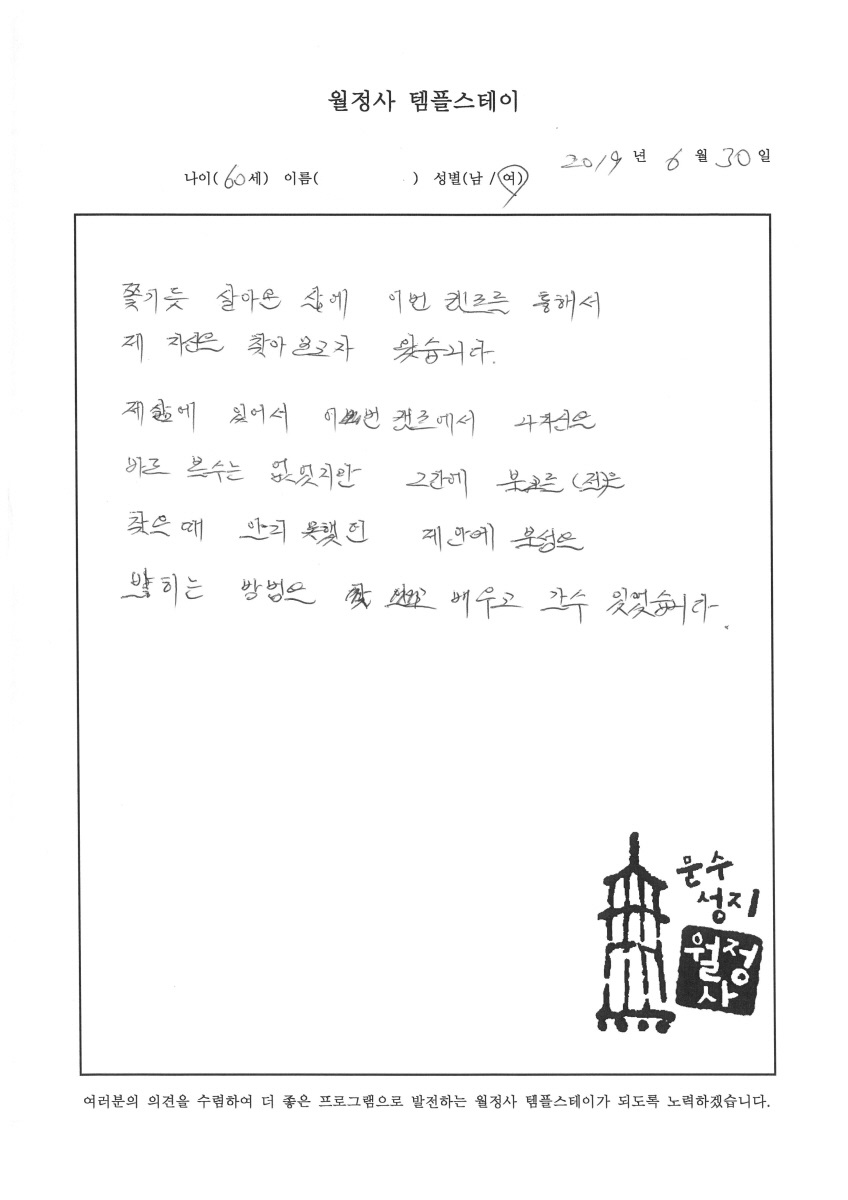 월정사 템플스테이
2019 년 6 월 30 일
나이( 60 세) 이름( ) 성별(남 / 여)
쫓기듯 살아온 삶에 이번 캠프를 통해서
제 자신을 찾아보고자 왔습니다.
제삶에 있어서 이번 캠프에서 나자신을
바로 볼수는 없었지만 그간에
찾을 때 안되 못했던 제안에 불성을
밝히는 방법을 배우고 갈수 있었습니다.
문수
성지
월정
사
여러분의 의견을 수렴하여 더 좋은 프로그램으로 발전하는 월정사 템플스테이가 되도록 노력하겠습니다.